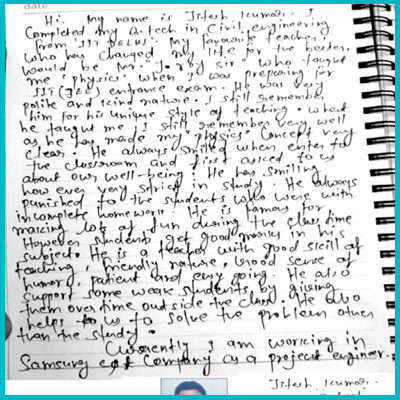 date
Hi. My name is Jitesh Kumar. I
Completed my B.tech in Civil engineering
from IIT DELHI. My favourite teacher,
who has changed my life for the better,
would be Mr. "Jo Roy sir" who taught
me "physics". When I was preparing for
IIT (JEE) entrance exam. He was very
polite and kind nature. I still remember
him for his unique style of teaching. What
he taught me I still remember very well
as he has made my "physics" concept very
clear. He always smiled when enter to
the classroom and first asked to us
about our well-being. He has smiling
however very strict in study. He always
punished to the students who were with
incomplete homework. He is famous for
making lots of fun during the class time
However students get good marks in his
subject. He is a teacher with good skill of
teaching, friendly nature, Good sense of
humor, patient and easy going. He also
support some weak students, by giving
them over time out side the class. He also
helps to us to solve the problem other
than the study.
Currently I am working in
Samsung c&t Company as a project engineer.
Jitesh Kumar.